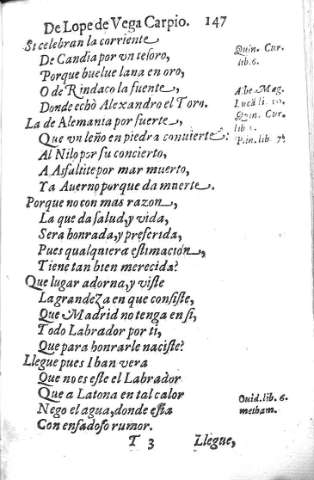 De Lope de Vega Carpio. 147
Si celebran la corriente
De Candia por vn tesoro,
Porque buelue lana en oro,
O de Rindaco la fuente,
Donde echò Alexandro el Toro.
La de Alemania por suerte,
Que vn leño en piedra conuierte:
Al Nilo por su concierto,
A Asfaltite por mar muerto,
Ya Auerno porque da muerte.
Porque no con mas razon,
La que da salud, y vida,
Sera honrada, y preferida,
Pues qualquiera estimacion,
Tiene tan bien merecida?
Que lugar adorna, y viste
La grandeza en que consiste,
Que Madrid no tenga en si,
Todo Labrador por ti,
Que para honrarle naciste?
Llegue pues Iban vera
Que no es este el Labrador
Que a Latona en tal calor
Nego el agua, donde esta
Con enfadoso rumor.
T 3 Llegue,
Quin. Cur.
lib. 6.
Albe Mag.
Quin. Cur.
Plin. lib. 7.
Ouid. lib. 6.
metham.